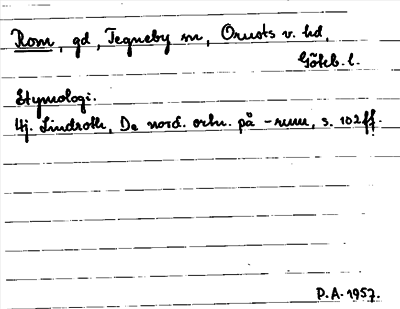 Rom, gd, Tegneby sn, Orusts v. hd,
Göteb. l.
Etymologi.
Hj. Lindroth, De nord. ortn. på -rum, s. 102 ff.
P.A. 1957.